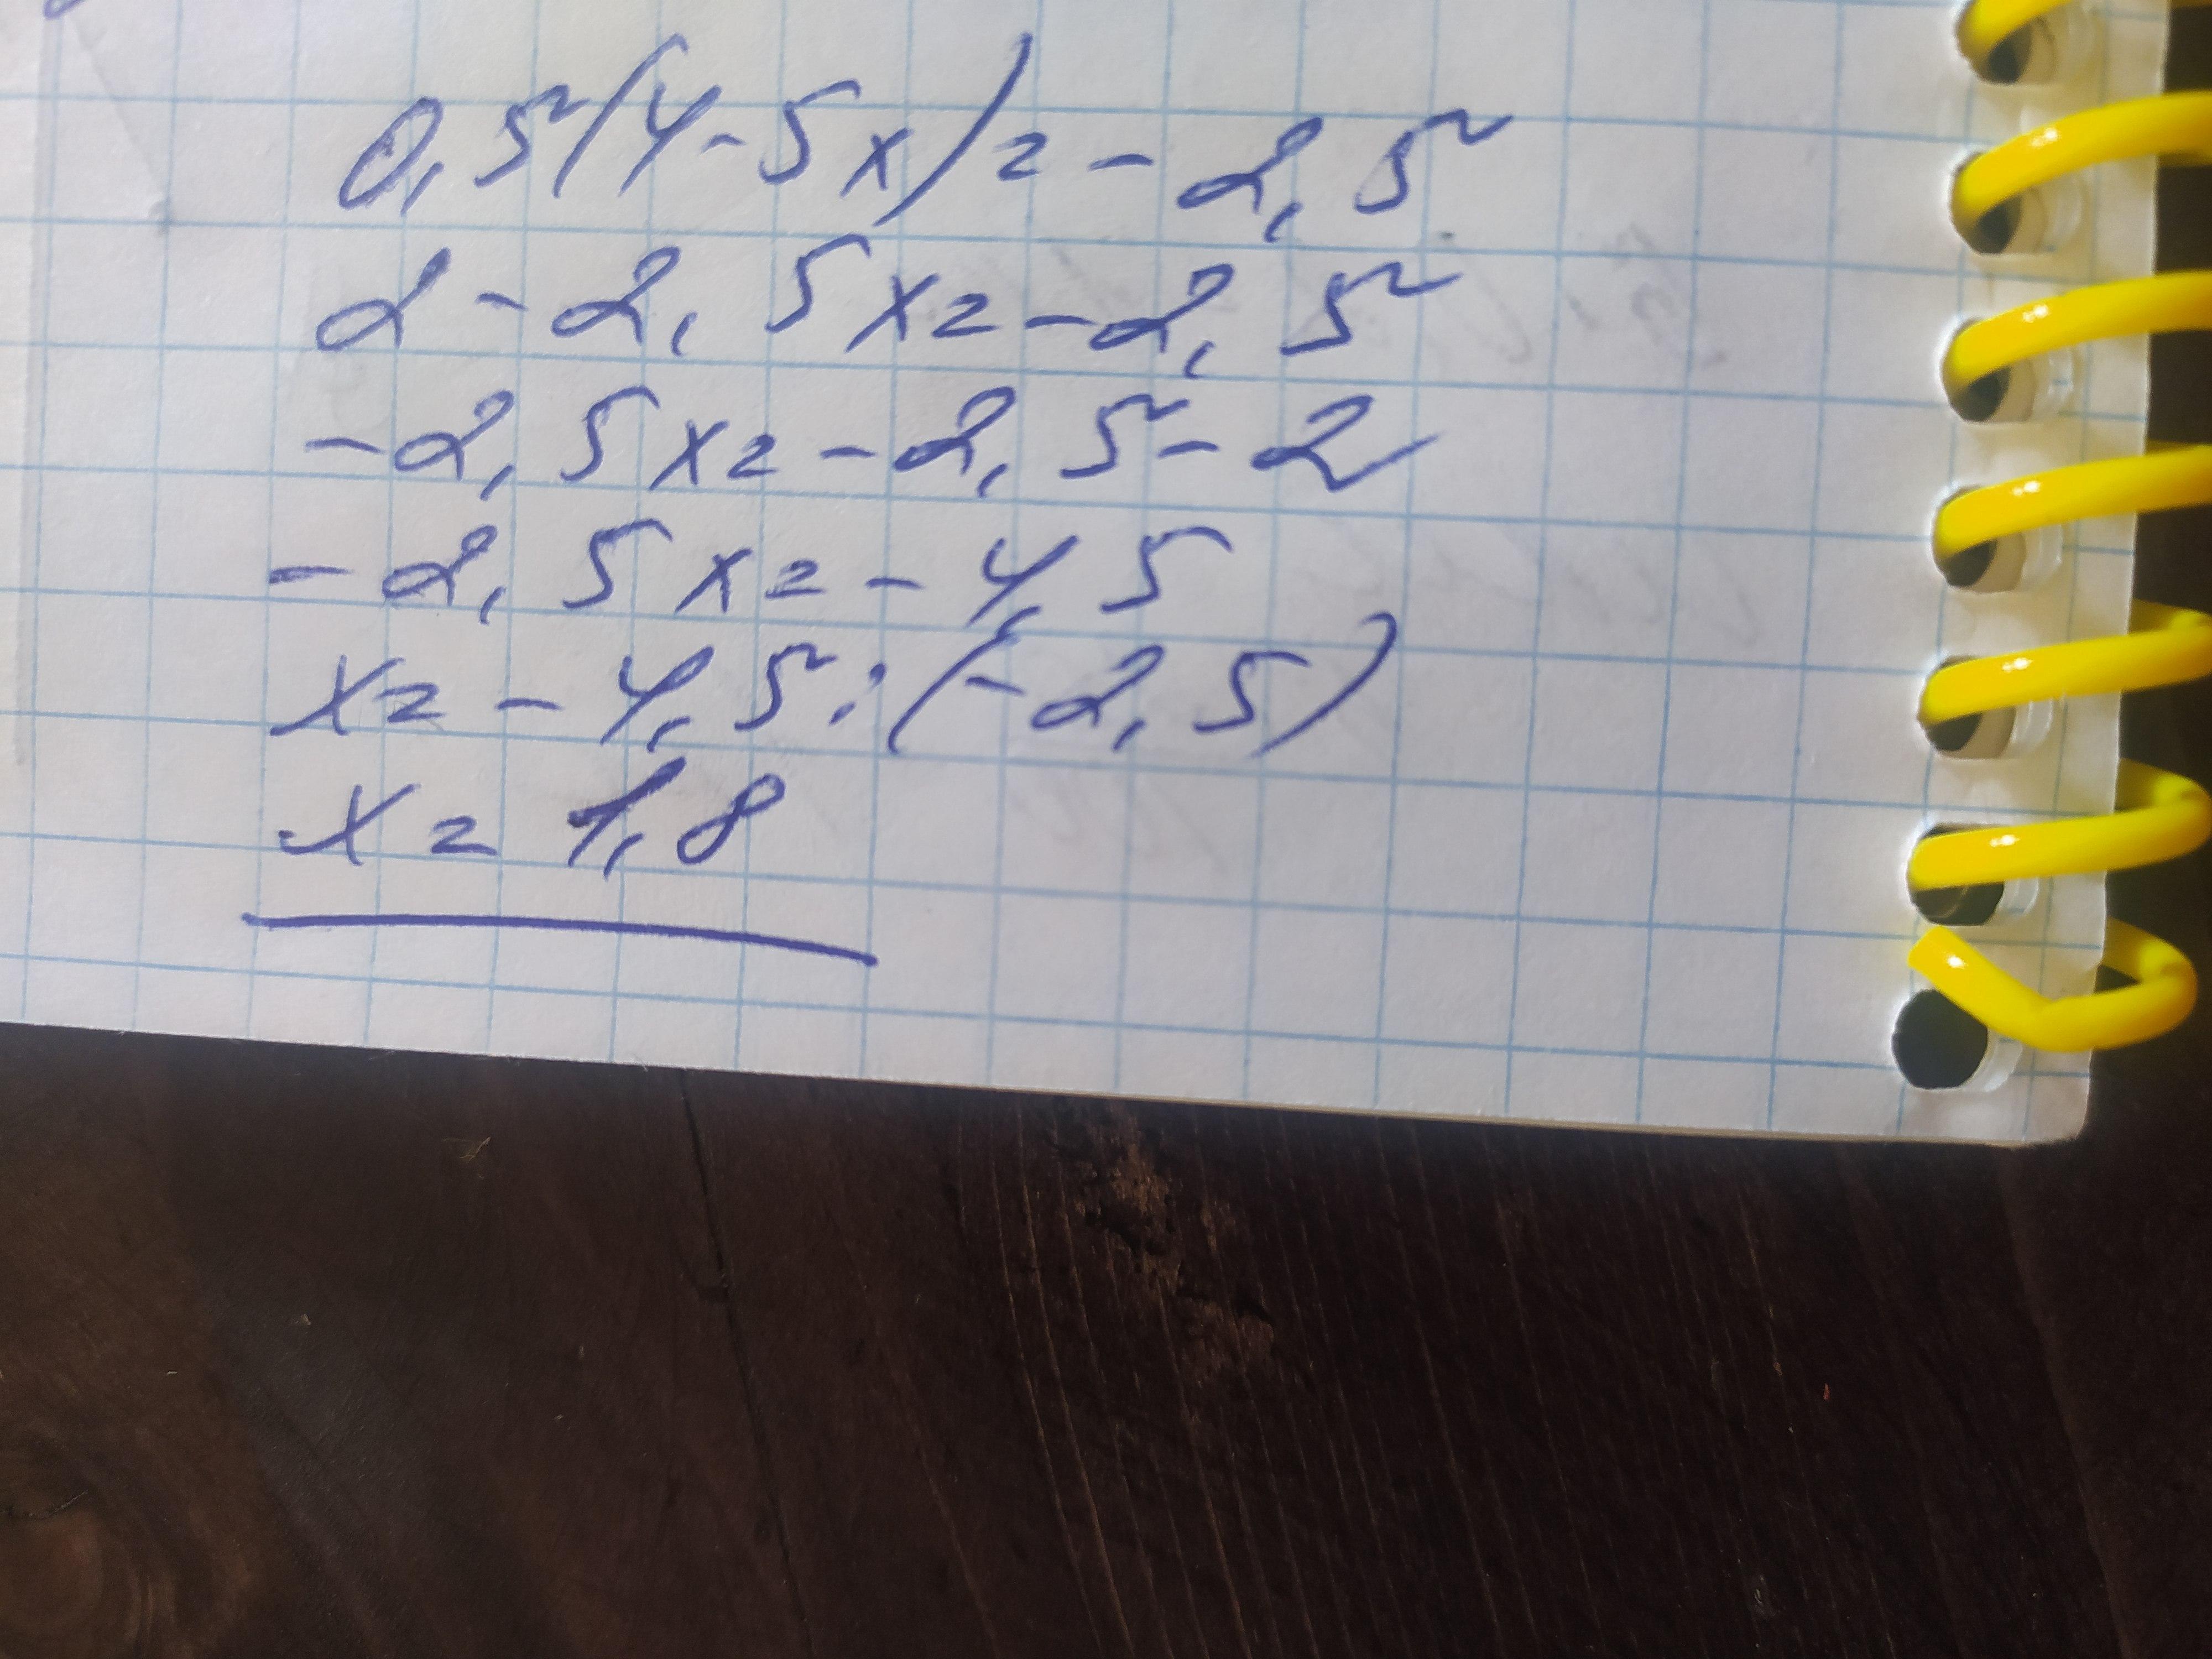 0,5(4-5x)=-2,5
2-2,5x=-2,5
-2,5x=-2,5-2
-2,5x=-4,5
x=-4,5:(-2,5)
x=1,8